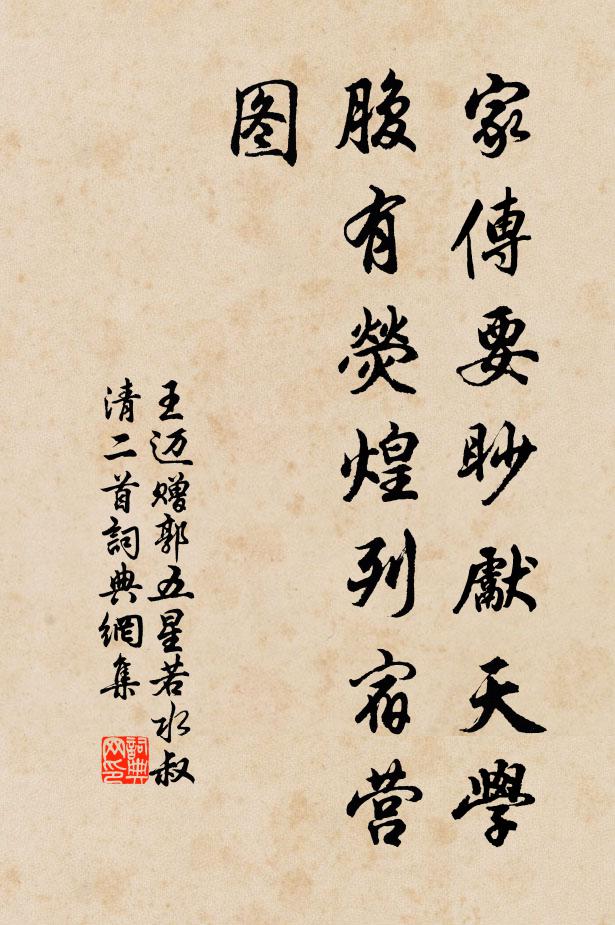 家傳要眇獻天學
腹有熒煌列宿营
图
王迈赠郭五星若水叔
清二首詞典網集
詞典
网印